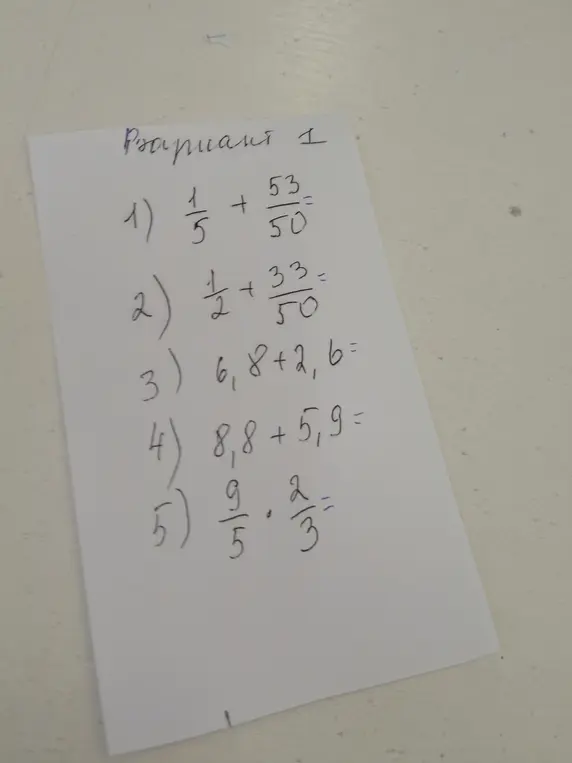 Вариант 1
1) 1/5 + 53/50 =
2) 1/2 + 33/50 =
3) 6,8 + 2,6 =
4) 8,8 + 5,9 =
5) 9/5 · 2/3 =